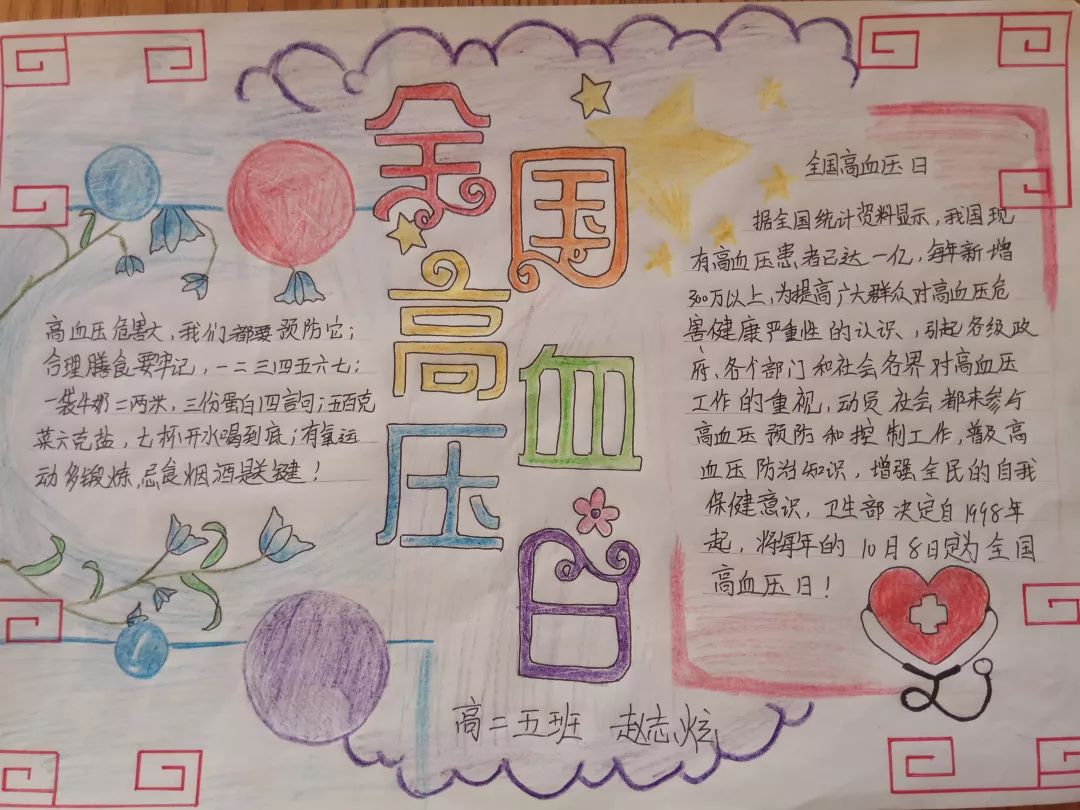 全国高血压日
高血压危害大，我们都要预防它；
合理膳食要牢记，一二三四五六七；
一袋牛奶二两米，三份蛋白四言句；五百克
菜六克盐，七杯开水喝到底；有氧运
动多锻炼，忌食烟酒是关键！
全国高血压日
据全国统计资料显示，我国现
有高血压患者已达一亿，每年新增
300万以上，为提高广大群众对高血压危
害健康严重性的认识、引起各级政
府、各个部门和社会各界对高血压
工作的重视，动员社会都来参与
高血压预防和控制工作，普及高
血压防治知识，增强全民的自我
保健意识，卫生部决定自1998年
起，将每年的10月8日定为全国
高血压日！
高二五班 赵志炫